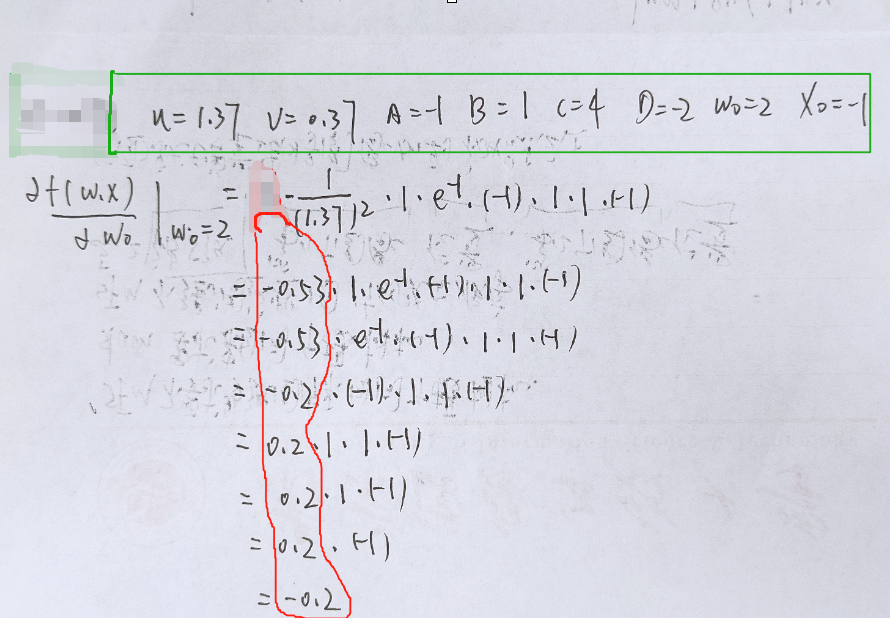 u=1.37 v=0.37 A=-1 B=1 C=4 D=-2 w₀=2 x₀=-1
∂f(w.x)/∂w₀ |w₀=2 = -1/(1.37)² · 1 · e⁻¹ · (-1) · 1 · 1 · (-1)
= -0.53 · 1 · e⁻¹ · (-1) · 1 · 1 · (-1)
= -0.53 · e⁻¹ · (-1) · 1 · 1 · (-1)
= -0.2 · (-1) · 1 · 1 · (-1)
= 0.2 · 1 · 1 · (-1)
= 0.2 · 1 · (-1)
= 0.2 · (-1)
= -0.2